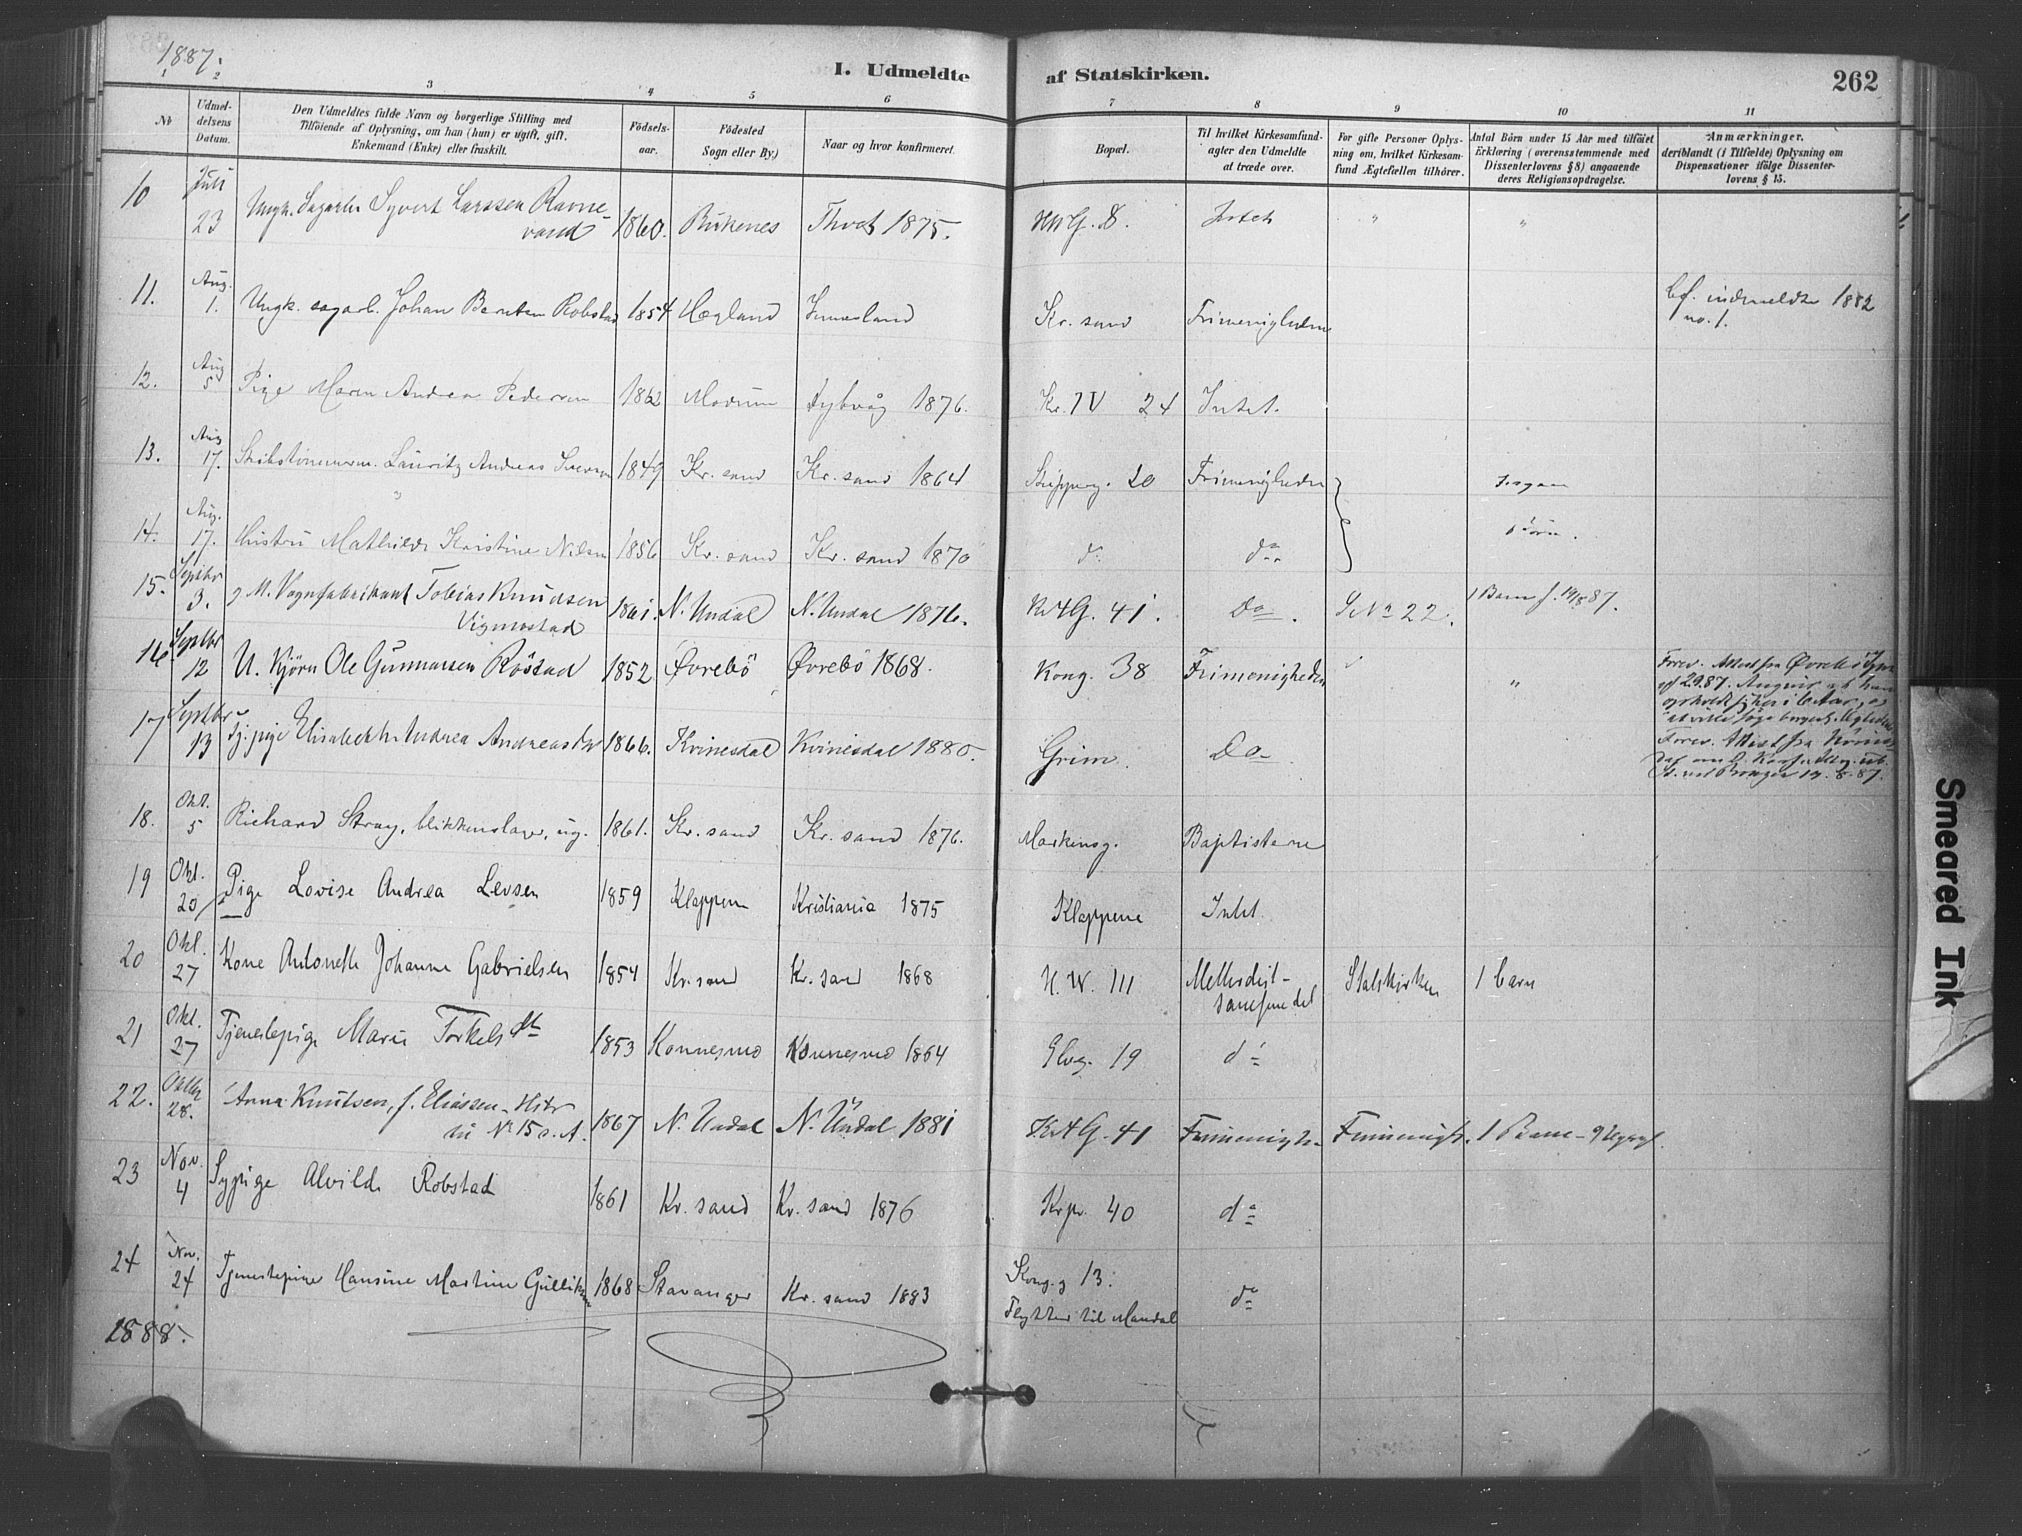 1887.
I. Udmeldte af Statskirken.
262
1 2 3 4 5 6 7 8 9 10 11
№
Udmel-
delsens
Datum.
Den Udmeldtes fulde Navn og borgerlige Stilling med
Tilføiende af Oplysning, om han (hun) er ugift, gift,
Enkemand (Enke) eller fraskilt.
Fødsels-
aar.
Fødested
Sogn eller By.)
Naar og hvor konfirmeret.
Bopæl.
Til hvilket Kirkesamfund
agter den Udmeldte
at træde over.
For gifte Personer Oplys-
ning om, hvilket Kirkesam-
fund Ægtefællen tilhører.
Antal Børn under 15 Aar med tilføiet
Erklæring (overensstemmende med
Dissenterlovens § 8) angaaende
deres Religionsopdragelse.
Anmærkninger.
deriblandt (i Tilfælde) Oplysning om
Dispensationer ifølge Dissenter-
lovens § 15.
10 Juli 23 Ungk. Sagarb. Syvert Larssen Ravne-
vand 1860. Birkenes 1875. Intet " "
11. Aug. 1. Ungk. sagarb. Johan Berntsen Robstad 1854 Høgland Kr. sand Frimenigheden cf. indmeldte 1882
no. 1.
12. Aug 5 Pige Maren Andrea Pedersen 1862 Modum Dybvåg 1876. Kr. IV 24 Intet.
13. Aug 17. Lauritz Andreas 1849 Kr. sand Kr. sand 1864 Skipperg. 20 Frimenigheden Ingen
14. Aug. 17. Hustru Mathilde Kristine Nilsen 1856 Kr. sand Kr. sand 1870 do do Børn.
15. Septbr 3. g. M. Vognfabrikant Tobias Knudsen
Vigmostad 1861. N. Undal N. Undal 1876. 41. Do. № 22. 1 Barn f. 19/8 87.
16 Septbr 12 U. Kjørn Ole Gunnarsen Røstad 1852 Øvrebö Øvrebö 1868. Kong. 38 Frimenigheden "
Forev. Attest fra Øvrebö
17 Septbr 13 Tj. pige Elisabeth Andrea Andreasdtr 1866. Kvinesdal Kvinesdal 1880. Grim. Do
Forev. Attest fra
18. Okt. 5 Richard Stray, blikkenslager, ug. 1861. Kr. sand Kr. sand 1876. Markensg. Baptisterne
19 Okt. 20 Pige Lovise Andrea Levsen 1859 Klappene Kristiania 1875 Klappene Intet.
20 Okt. 27 Kone Antonette Johanne Gabrielsen 1854 Kr. sand Kr. sand 1868 H. W. 111 Methodist-
samfundet Statskirken 1 barn
21 Okt. 27 Tjenestepige Marie Torkelsdtr 1853 Konnesmo Konnesmo 1864 Elveg. 19 do
22. Oktbr 28. Anna Knutsen, f. Eliassen - Hustr
til № 15 s. A. 1867 N. Undal N. Undal 1881 41 Frimenigh. Frimenigh. 1 Barn
23 Nov. 4 Sypige Alvilde Robstad 1861 Kr. sand Kr. sand 1876 40 do
24 Nov. 24 Tjenestepige Hansine Martine Gulliksen 1868 Stavanger Kr. sand 1883 Kong. g 13.
Flytter til Mandal do
1888.
Smeared Ink